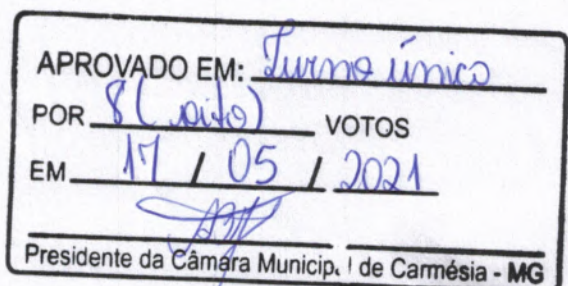 APROVADO EM: Turno único
POR 8 (oito) VOTOS
EM 17 / 05 / 2021
Presidente da Câmara Municipal de Carmésia - MG